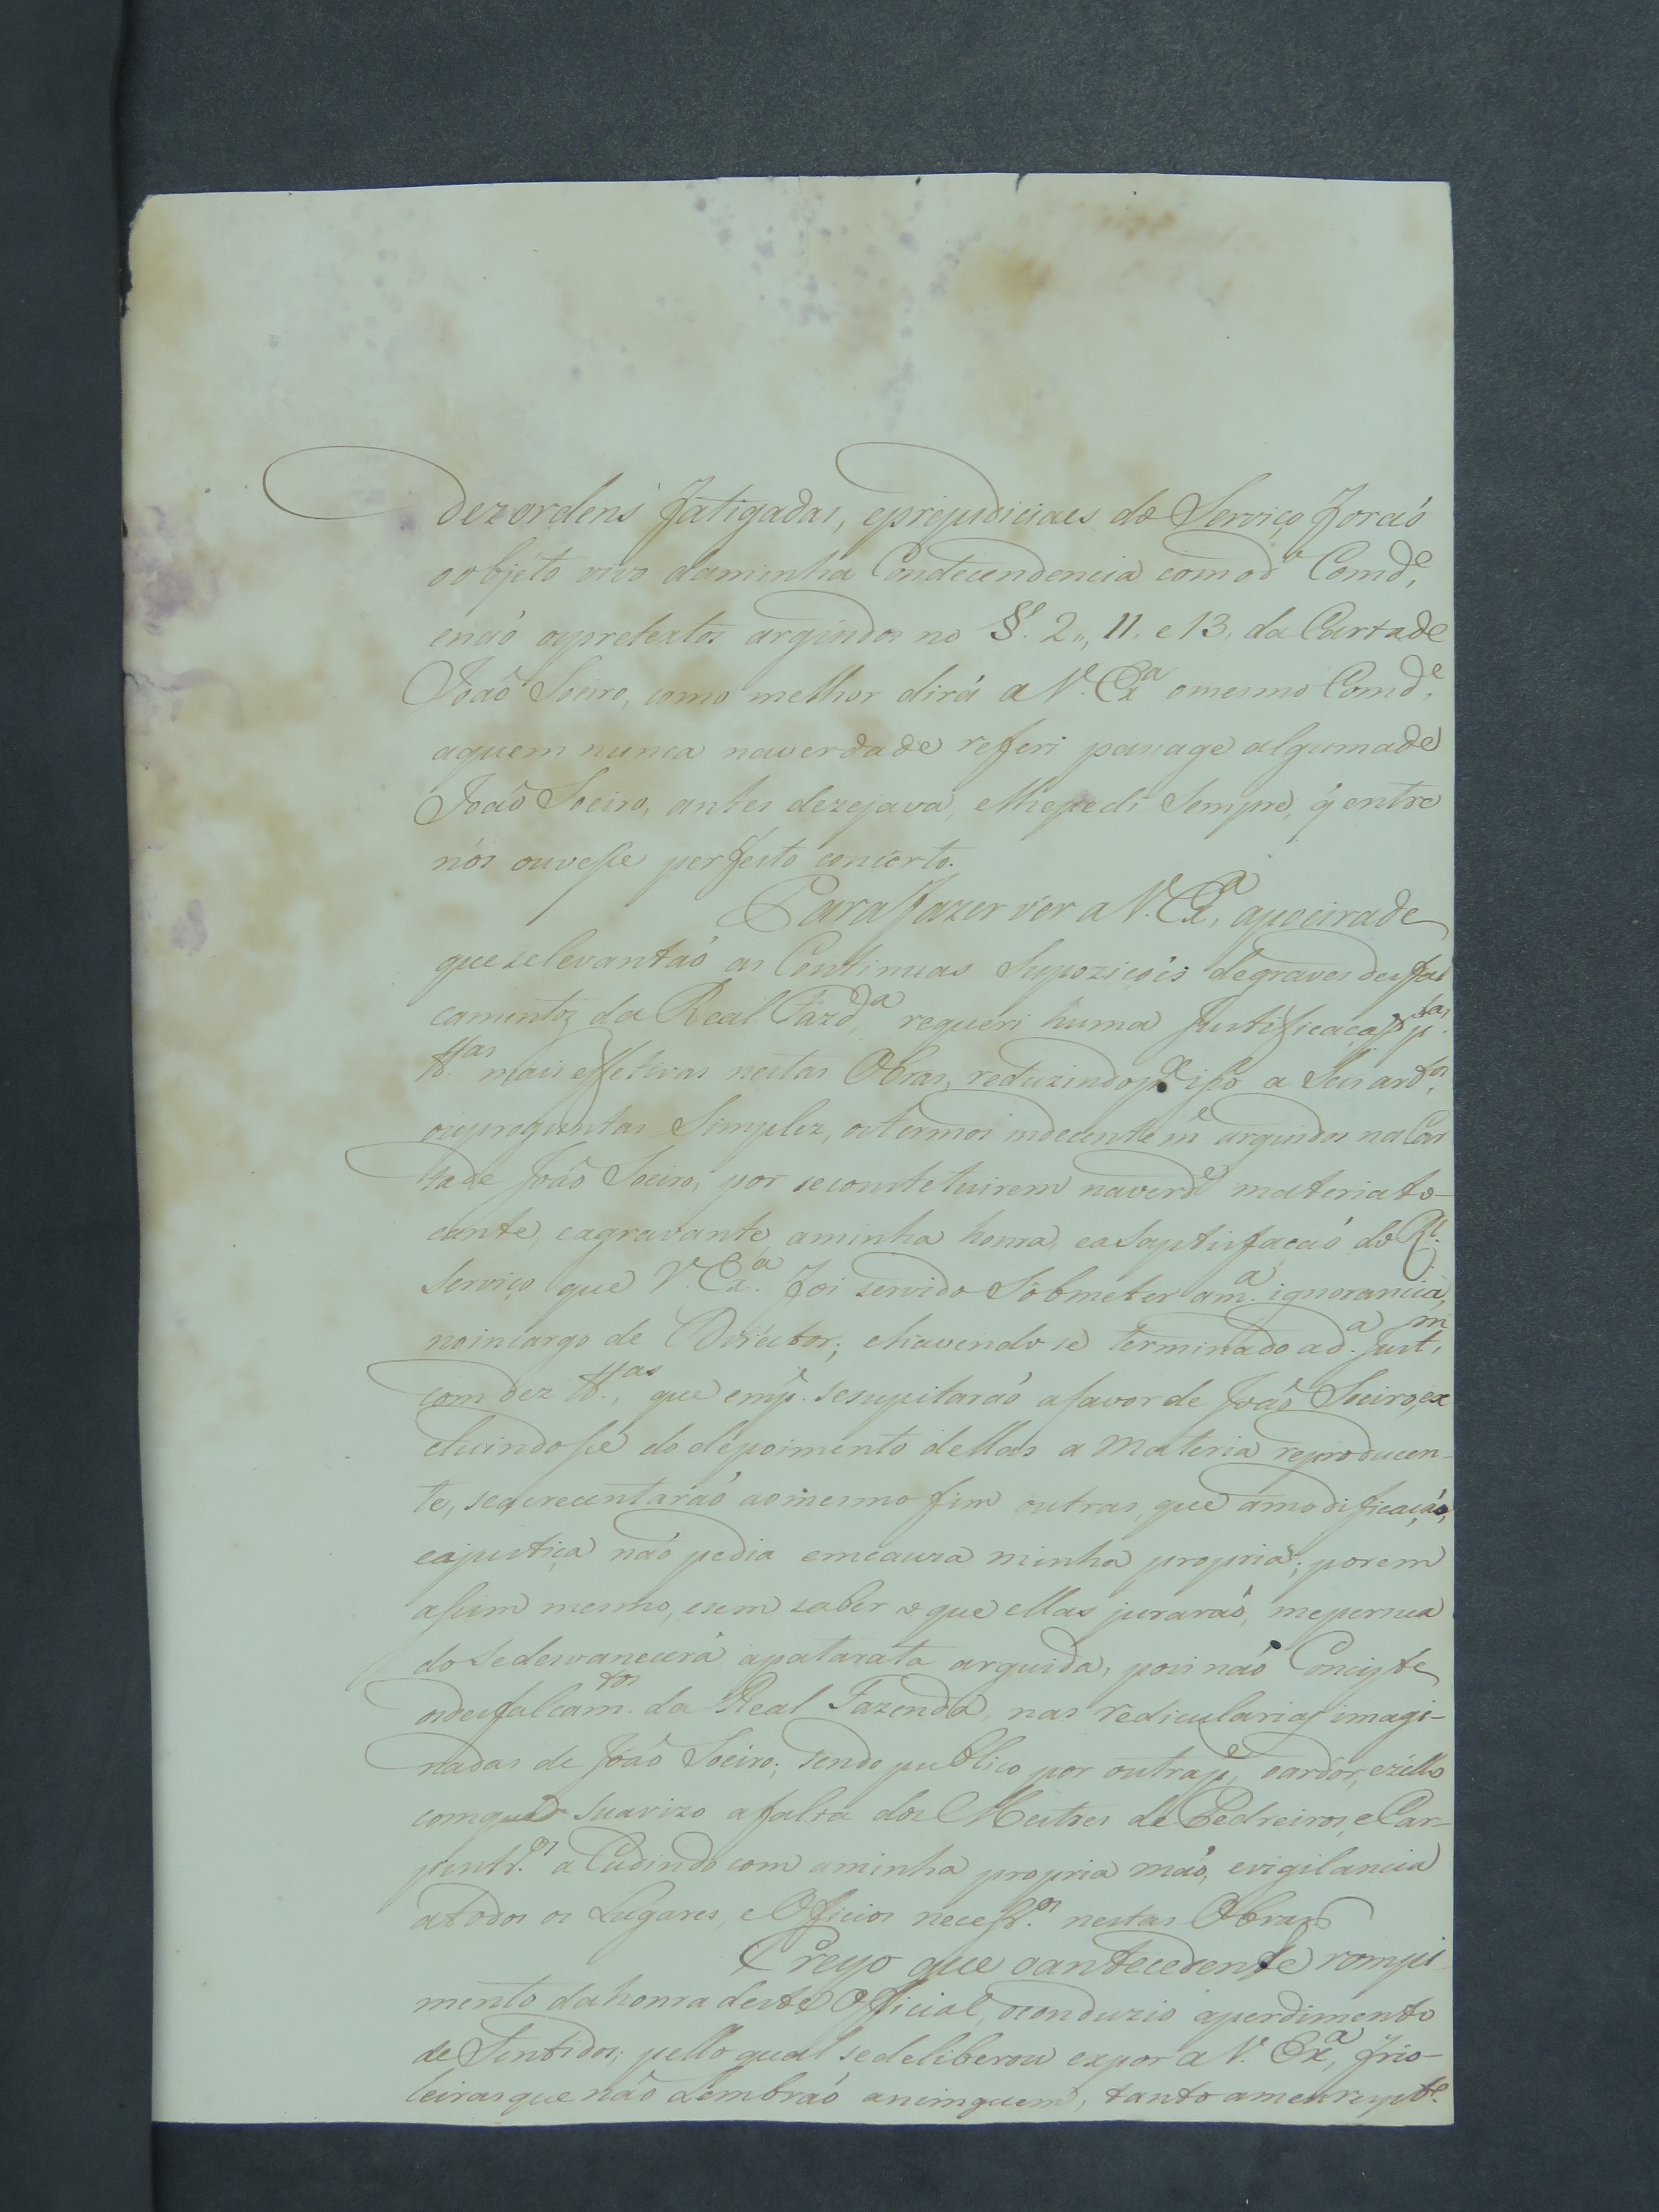 dezordens fatigadas, eprejudiciaes do Serviço foraó
oobjéto vivo daminha Condecendencia comod.º Comd.e,
enaó ospretextos arguidos no §. 2., 11. e 13. da Cartade
Joaõ Soeiro, como melhor dirá a V. Ex.a omesmo Comd.e,
aquem nunca naverdade referi pasage algumade
Joaõ Soeiro, antes dezejava, elhepedi Sempre, q̃ entre
nós ouvesse perfeito concerto.
Parafazer ver a V. Ex.a, apoeirade
queselevantaó as Continuas Supoziçoẽs degraves desfal
camentos da Real Fazd.a, requeri huma Justificaçaõ p.tas
tt.as mais effetivas nestas Obras, reduzindo p.r isso a Seis art.os,
ouperguntas Simplez, ostermos indecentem.e arguidos na Car
ta de Joaõ Soeiro, por seconstetuirem naverd.e materia to-
cante, eagravante aminha honra, easaptisfaçaó do R.l
Serviço que V. Ex.a foi servido Sobmeter am.a ignorancia,
noincargo de Diréctor; ehavendo se terminado ad.a Just.m,
com dez tt.as, que emp. sesupitaraó afavor de Joaõ Soeiro, ex
cluindosse do depoimento dellas a Materia reproducen-
te, seacrecentaraó aomesmo fim outras, que amodificaçaó,
eajustiça naó pedia emcauza minha propria; porem
assim mesmo, esem saber oque ellas juraraó, mepersua
do sedesvanecerá apatarata arguida, pois naó Conciste
osdesfalcam.tos da Real Fazenda, nas rediculariaz imagi-
nadas de Joaõ Soeiro; sendo publico por outrap.e, oardor, ezéllo
comque suavizo afalta dos Mestres de Pedreiros, e Car-
pintr.os aCudindo com aminha propria maó, evigilancia
atodos os Lugares, e Officios necess.os nestas Obras.
Creyo que oantecedente rompi
mento dahonra deste Official, oconduzio aperdimento
de Sentidos; pelloqual sedeliberou expor a V. Ex.a, frio-
leiras que naõ Lembraó animguem, tanto ameu respt.º